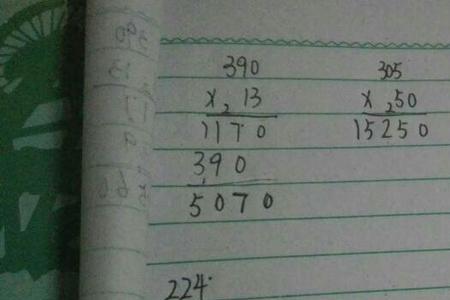 390
× 13
1170
390
5070
305
× 50
15250
224